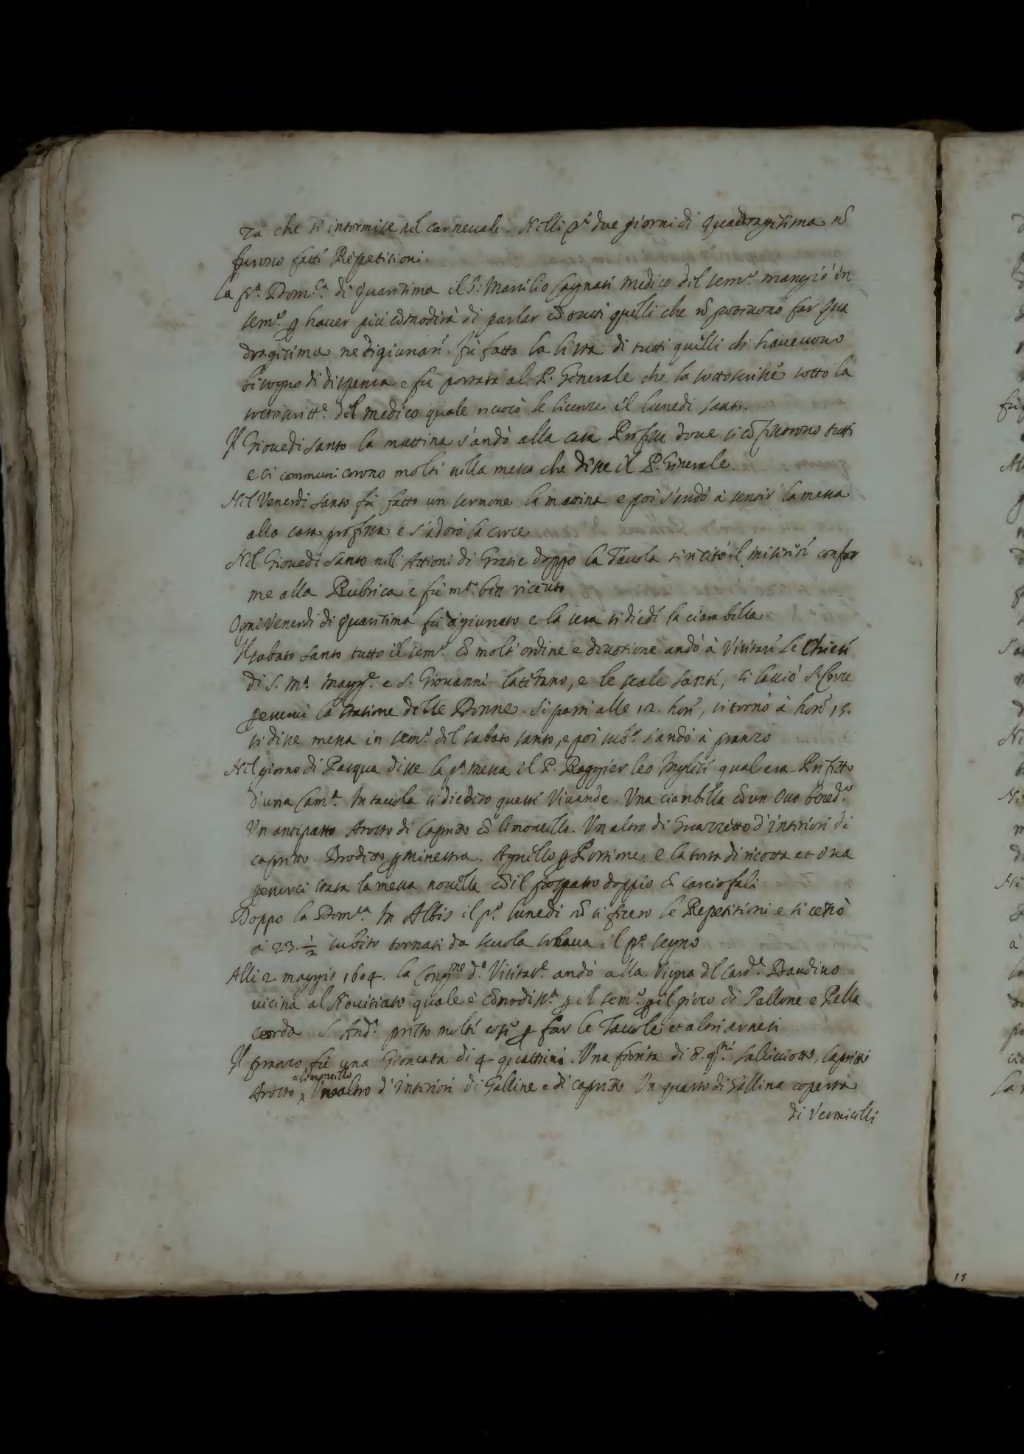 za che si intermise nel carnevale. Nelli p.i due giorni di Quadragesima nõ
furono fatti Repetitioni.
La p.a Dom.ca di Quaresima il S. Marsilio Cagnati Medico del sem.o mangiò in
sem.o ꝑ haver più cõmodità di parlar cõ tutti quelli che nõ potevono far Qua
dragesima ne degiunari. fu fatta la lista di tutti quelli ch havevono
bisogno di dispensa e fu portata al P. Generale che la sottoscrisse sotto la
sottoscritt.a del medico quale revocò le licenze il lunedi santo.
Il Giovedi santo la mattina s'andò alla casa Professa dove si cõfessorono tutti
e si communicorono molti nella messa che disse il P. Generale.
Nel Venerdi santo fu fatto un sermone la mattina e poi s'andò à sentir la messa
alla casa professa e s'adorò la croce
Nel Giovedi santo nell Attioni di Gratie doppo la Tavola si recitò il miserere confor
me alla Rubrica e fu m.to ben recitato
Ogni Venerdi di Quaresima fu degiunato e la sera si diede la ciambella
Il sabato santo tutto il sem.o cõ molt ordine e devotione andò à Visitare le Chiese
di S. M.a Magg.re e S. Giovanni Laterano, e le scale sante, si lasciò S. Croce
ꝑ esservi la statione delle Donne. Si partì alle 12. hore, si tornò à hore 15.
si disse messa in sem.o del sabato santo, e poi sub.o s'andò à pranzo
Nel giorno di Pasqua disse la p.a messa il P. Roggier leo Inglese qual era Prefetto
d'una Cam.a In tavola si diedero queste Vivande. Una ciambella cõ un Ovo bened.o
Un antipasto Arosto di Capretto cõ limoncello. Un altro di Guazzetto d'interiori di
capretto. Brodetto ꝑ minestra. Agnello ꝑ Portione, e la torta di ricotta et ova
ꝑ esserci stata la messa novella cõ il pospasto doppio cõ carciofali
Doppo la Dom.ca In Albis il p.o lunedi nõ si fecero le Repetitioni e si cenò
à 23. ½ subito tornati da scuola sonava il p.o segno
Alli 2. maggio 1604. la Cong.ne d.a Visitat.e andò alla Vigna del Card.e Bandino
vicina al Novitiato quale è cõmodiss.a ꝑ il sem.o ꝑ il gioco di Pallone e Palla
corda. S. And.a prestò molte cose ꝑ far le Tavole et altri arnesi
Il pranzo fu una Gioncata di 4. quattrini. Una fioreta di 8. q.ni salsicciotto, Capretto
Arosto e limoncello, Un altro d'Interiori di Galline e di capretto Un quarto di Gallina coperta
di Vermicelli
15